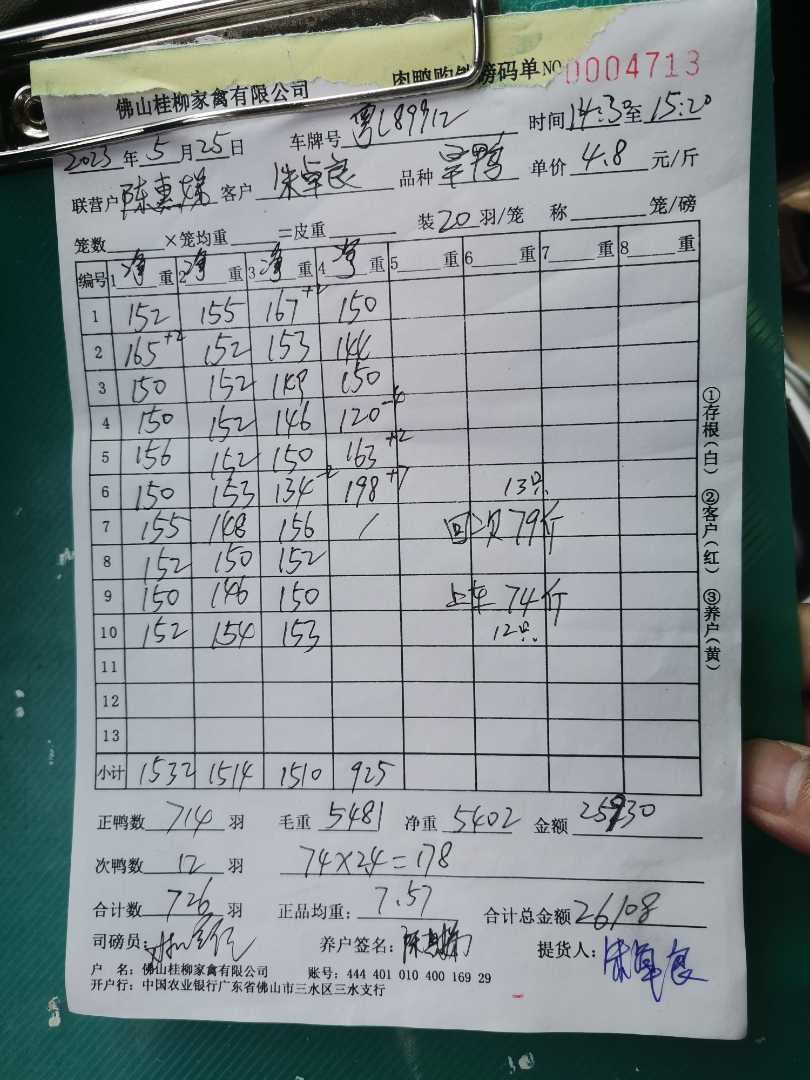 佛山桂柳家禽有限公司 磅码单NO 0004713
2023年5月25日 车牌号 粤L89912 时间14:30至15:20
联营户 陈惠娣 客户 朱卓良 品种 单价 4.8 元/斤
笼数 ×笼均重 =皮重 装20羽/笼 称 笼/磅
编号 1 净 重 2 净 重 3 净 重 4 净 重 5 重 6 重 7 重 8 重
1 152 155 167+2 150
2 165+2 152 153 144
3 150 152 149 150
4 150 152 146 120-4
5 156 152 150 163+2
6 150 153 134-2 198+7 13只
7 155 148 156 / 回次79斤
8 152 150 152
9 150 146 150 上车74斤
10 152 154 153 12只
11
12
13
小计 1532 1514 1510 925
正鸭数 714 羽 毛重 5481 净重 5402 金额 25930
次鸭数 12 羽 74×24=178
合计数 726 羽 正品均重: 7.57 合计总金额 26108
司磅员: 养户签名: 陈惠娣 提货人: 朱卓良
户 名: 佛山桂柳家禽有限公司 账号: 444 401 010 400 169 29
开户行: 中国农业银行广东省佛山市三水区三水支行
①存根(白) ②客户(红) ③养户(黄)